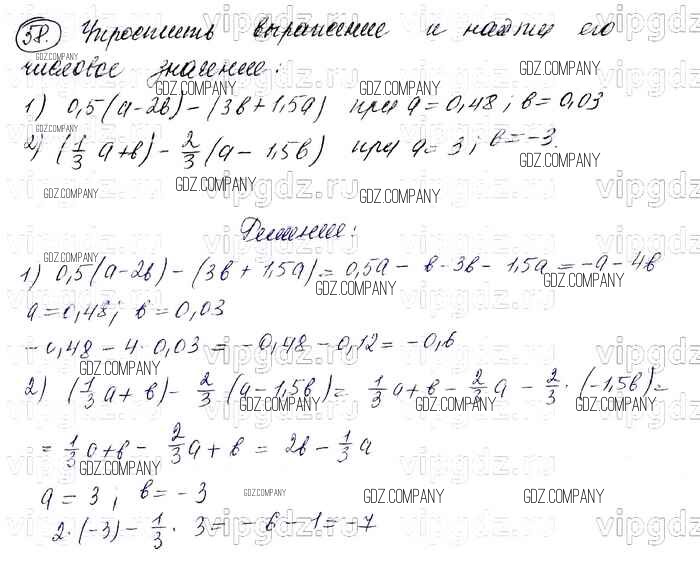 58. Упростить выражение и найти его
числовое значение:
1) 0,5(a-2b) - (3b+1,5a) при a=0,48; b=0,03
2) (1/3 a+b) - 2/3 (a-1,5b) при a=3; b=-3.
Решение:
1) 0,5(a-2b) - (3b+1,5a) = 0,5a - b - 3b - 1,5a = -a-4b
a=0,48; b=0,03
-0,48 - 4·0,03 = -0,48-0,12 = -0,6
2) (1/3 a+b) - 2/3 (a-1,5b) = 1/3 a+b - 2/3 a - 2/3 · (-1,5b) =
= 1/3 a+b - 2/3 a + b = 2b - 1/3 a
a=3; b=-3
2·(-3) - 1/3 · 3 = -6-1=-7
GDZ.COMPANY
vipgdz.ru